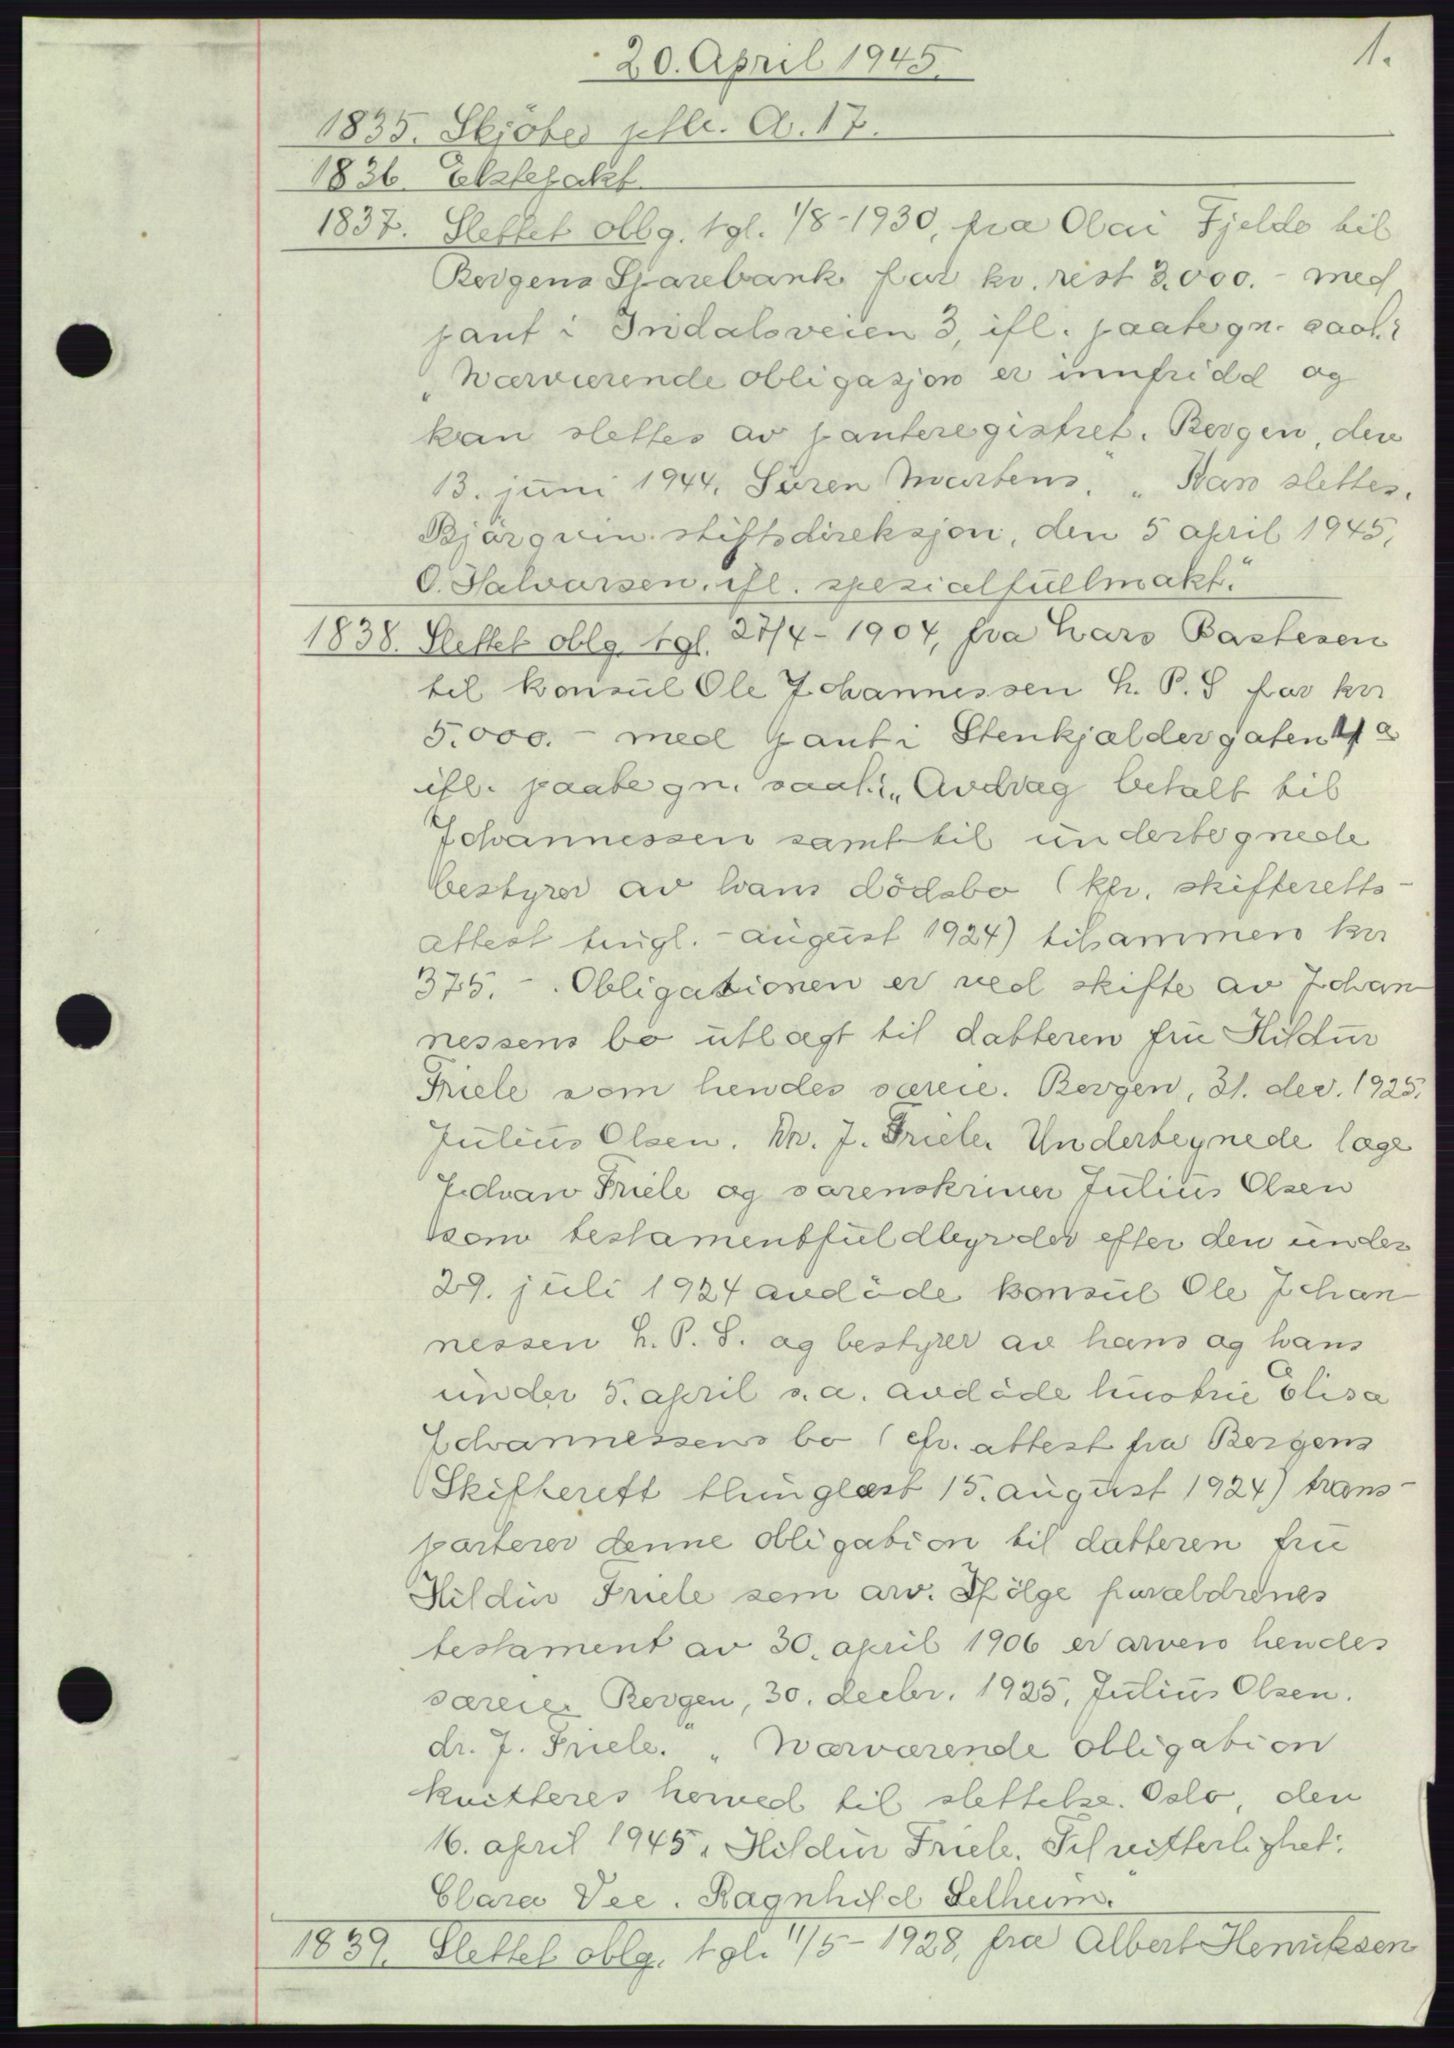 20. April 1945.
1.
1835. Skjöte
1836. Ektepakt.
1837. Slettet oblg. tgl. 1/8-1930, fra Olai Fjelde til
Bergens Sparebank for kr. rest 3.000.- med
pant i Inndalsveien 3, ifl. paategn. saal.:
„Nærværende obligasjon er innfridd og
kan slettes av panteregistret. Bergen, den
13. juni 1944. Sören Martens." „Kan slettes.
Björgvin stiftsdireksjon, den 5 april 1945,
O. Halvorsen. ifl. spesialfullmakt."
1838. Slettet oblg. tgl. 27/4-1904, fra Lars Bastesen
til konsul Ole Johannessen L. P. S for kr
5.000.- med pant i Stenkjeldergaten 4 a
ifl. paategn. saal.: „Avdrag betalt til
Johannessen samt til undertegnede
bestyrer av hans dödsbo (kfr. skifteretts-
attest tingl. - august 1924) tilsammen kr
375.-. Obligationen er ved skifte av Johan-
nessens bo utlægt til datteren fru Hildur
Friele som hendes særeie. Bergen, 31. dec. 1925.
Julius Olsen. Dr. J. Friele. Undertegnede læge
Johan Friele og sorenskriver Julius Olsen
som testamentfuldbyrder efter den under
29. juli 1924 avdöde konsul Ole Johan-
nessen L. P. S. og bestyrer av hans og hans
under 5. april s.a. avdöde hustru Elisa
Johannessens bo (cfr. attest fra Bergens
Skifterett thinglæst 15. august 1924) trans-
porterer denne obligation til datteren fru
Hildur Friele som arv. Ifölge forældrenes
testament av 30. april 1906 er arven hendes
særeie. Bergen, 30. decbr. 1925. Julius Olsen.
dr. J. Friele." „Nærværende obligation
kvitteres herved til slettelse. Oslo, den
16. april 1945. Hildur Friele. Til vitterlighet:
Clara Vee. Ragnhild Selheim."
1839. Slettet oblg. tgl. 11/5-1928, fra Albert Henriksen